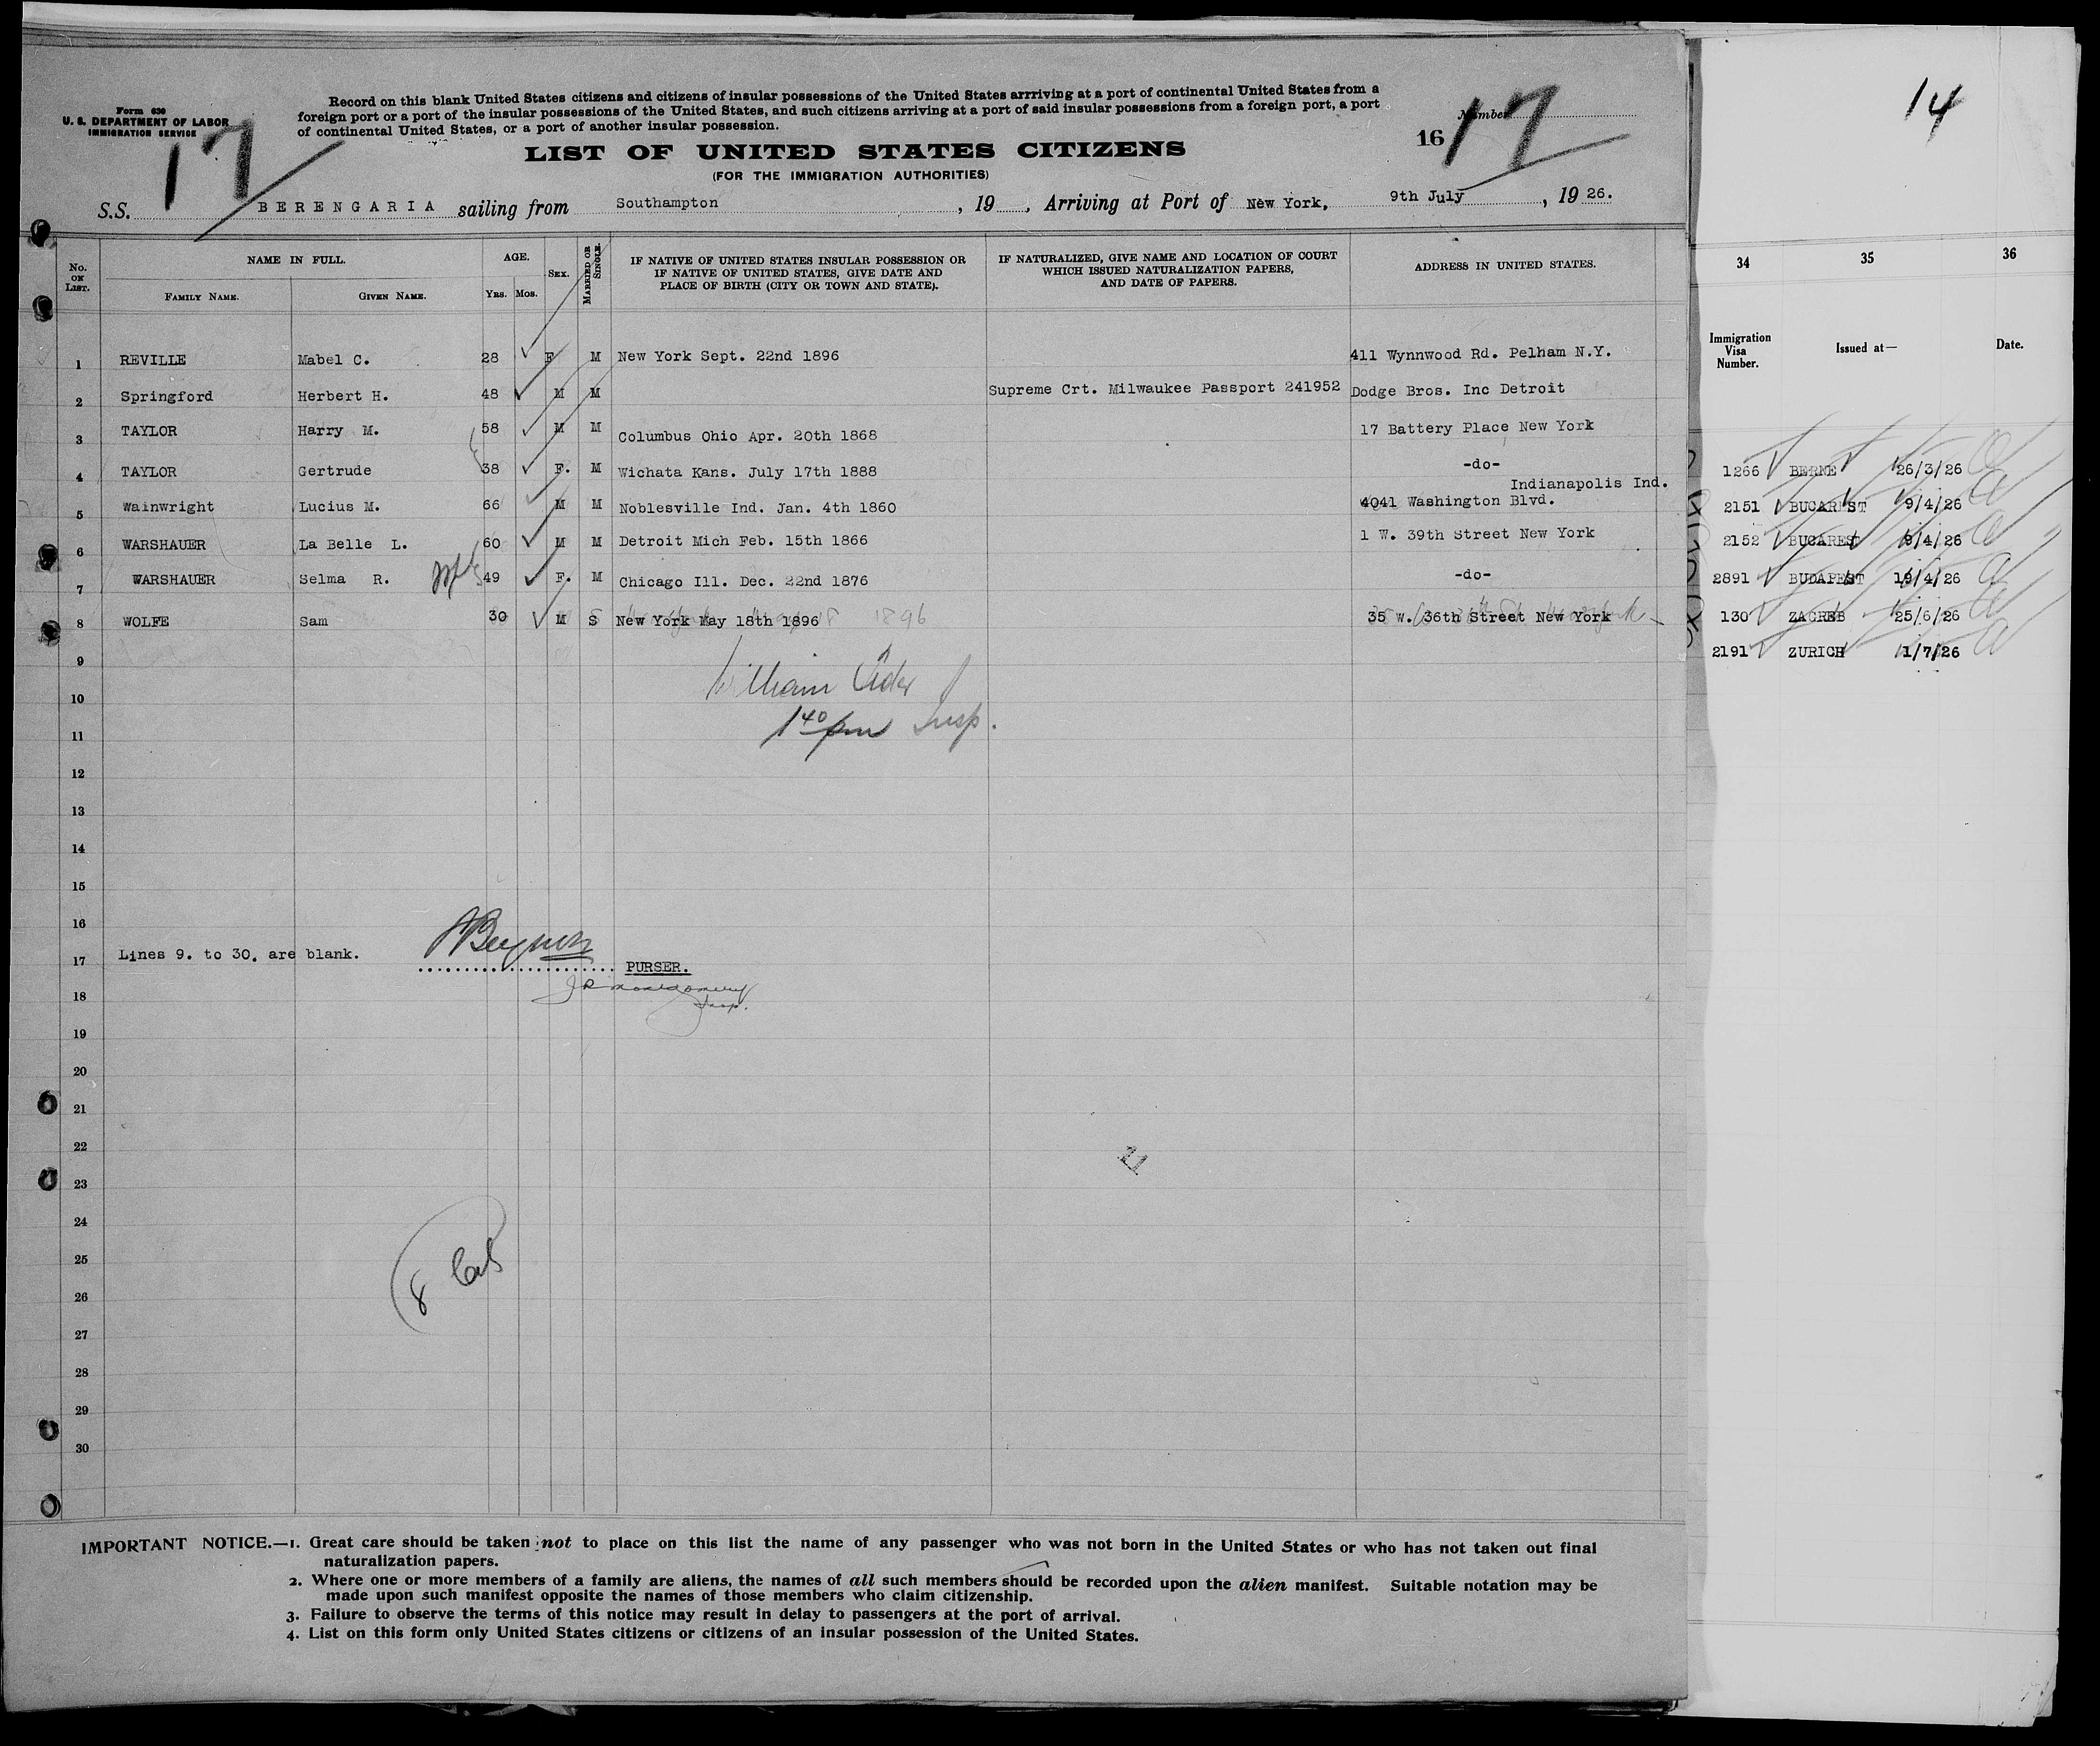 Form 630
U. S. DEPARTMENT OF LABOR
IMMIGRATION SERVICE
Record on this blank United States citizens and citizens of insular possessions of the United States arrriving at a port of continental United States from a
foreign port or a port of the insular possessions of the United States, and such citizens arriving at a port of said insular possessions from a foreign port, a port
of continental United States, or a port of another insular possession.
Number
17
16 17
LIST OF UNITED STATES CITIZENS
(FOR THE IMMIGRATION AUTHORITIES)
S.S. BERENGARIA sailing from Southampton , 19 , Arriving at Port of New York, 9th July , 19 26.
No. ON LIST. NAME IN FULL. AGE. SEX. MARRIED OR SINGLE. IF NATIVE OF UNITED STATES INSULAR POSSESSION OR IF NATIVE OF UNITED STATES, GIVE DATE AND PLACE OF BIRTH (CITY OR TOWN AND STATE). IF NATURALIZED, GIVE NAME AND LOCATION OF COURT WHICH ISSUED NATURALIZATION PAPERS, AND DATE OF PAPERS. ADDRESS IN UNITED STATES.
FAMILY NAME. GIVEN NAME. YRS. MOS.
1 REVILLE Mabel C. 28 F M New York Sept. 22nd 1896 411 Wynnwood Rd. Pelham N.Y.
2 Springford Herbert H. 48 M M Supreme Crt. Milwaukee Passport 241952 Dodge Bros. Inc Detroit
3 TAYLOR Harry M. 58 M M Columbus Ohio Apr. 20th 1868 17 Battery Place New York
4 TAYLOR Gertrude 38 F. M Wichata Kans. July 17th 1888 -do-
Indianapolis Ind.
5 Wainwright Lucius M. 66 M M Noblesville Ind. Jan. 4th 1860 4041 Washington Blvd.
6 WARSHAUER La Belle L. 60 M M Detroit Mich Feb. 15th 1866 1 W. 39th Street New York
7 WARSHAUER Selma R. 49 F. M Chicago Ill. Dec. 22nd 1876 -do-
8 WOLFE Sam 30 M S New York May 18th 1896 1896 35 W. 36th Street New York
9
William
10
140 pm Insp.
11
12
13
14
15
16
17 Lines 9. to 30. are blank. PURSER.
JR Montgomery
18 Insp.
19
20
21
22
11
23
24
25
8
26
27
28
29
30
IMPORTANT NOTICE.—1. Great care should be taken not to place on this list the name of any passenger who was not born in the United States or who has not taken out final
naturalization papers.
2. Where one or more members of a family are aliens, the names of all such members should be recorded upon the alien manifest. Suitable notation may be
made upon such manifest opposite the names of those members who claim citizenship.
3. Failure to observe the terms of this notice may result in delay to passengers at the port of arrival.
4. List on this form only United States citizens or citizens of an insular possession of the United States.
14
34 35 36
Immigration Visa Number. Issued at— Date.
1266 BERNE 26/3/26
2151 BUCAREST 9/4/26
2152 BUCAREST 9/4/26
2891 BUDAPEST 19/4/26
130 ZAGREB 25/6/26
2191 ZURICH 1/7/26